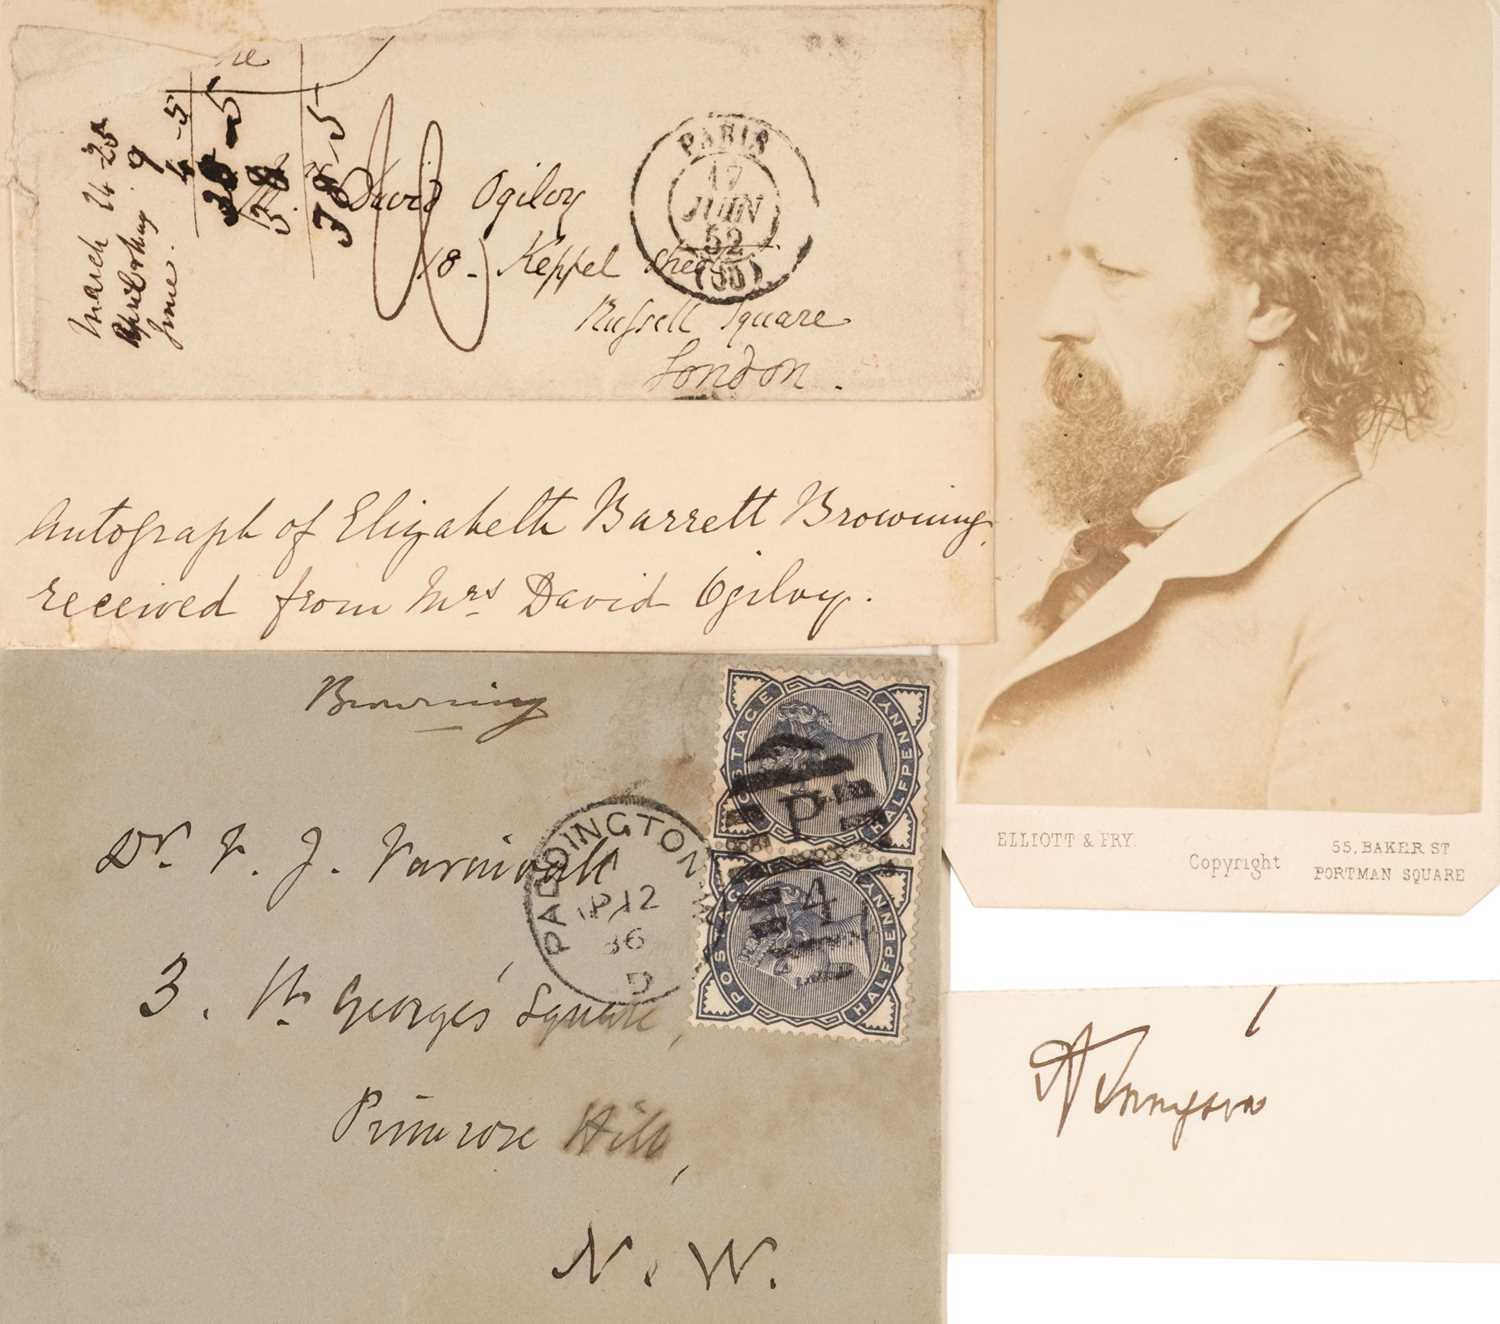 March 24-25
April & May . 9
June . 4-5
38-5
38
38-5
PARIS
17
JUIN
52
(60)
David Ogilvy
18 - Keppel Street
Russell Square
London .
Autograph of Elizabeth Barrett Browning,
received from Mrs David Ogilvy.
Browning
POSTAGE HALFPENNY
POSTAGE HALFPENNY
P
4
PADDINGTON W
AP 12
86
Dr. F. J. Furnivall
3 . St. George's Square,
Primrose Hill,
N. W.
ELLIOTT & FRY.
Copyright
55, BAKER ST
PORTMAN SQUARE
A Tennyson